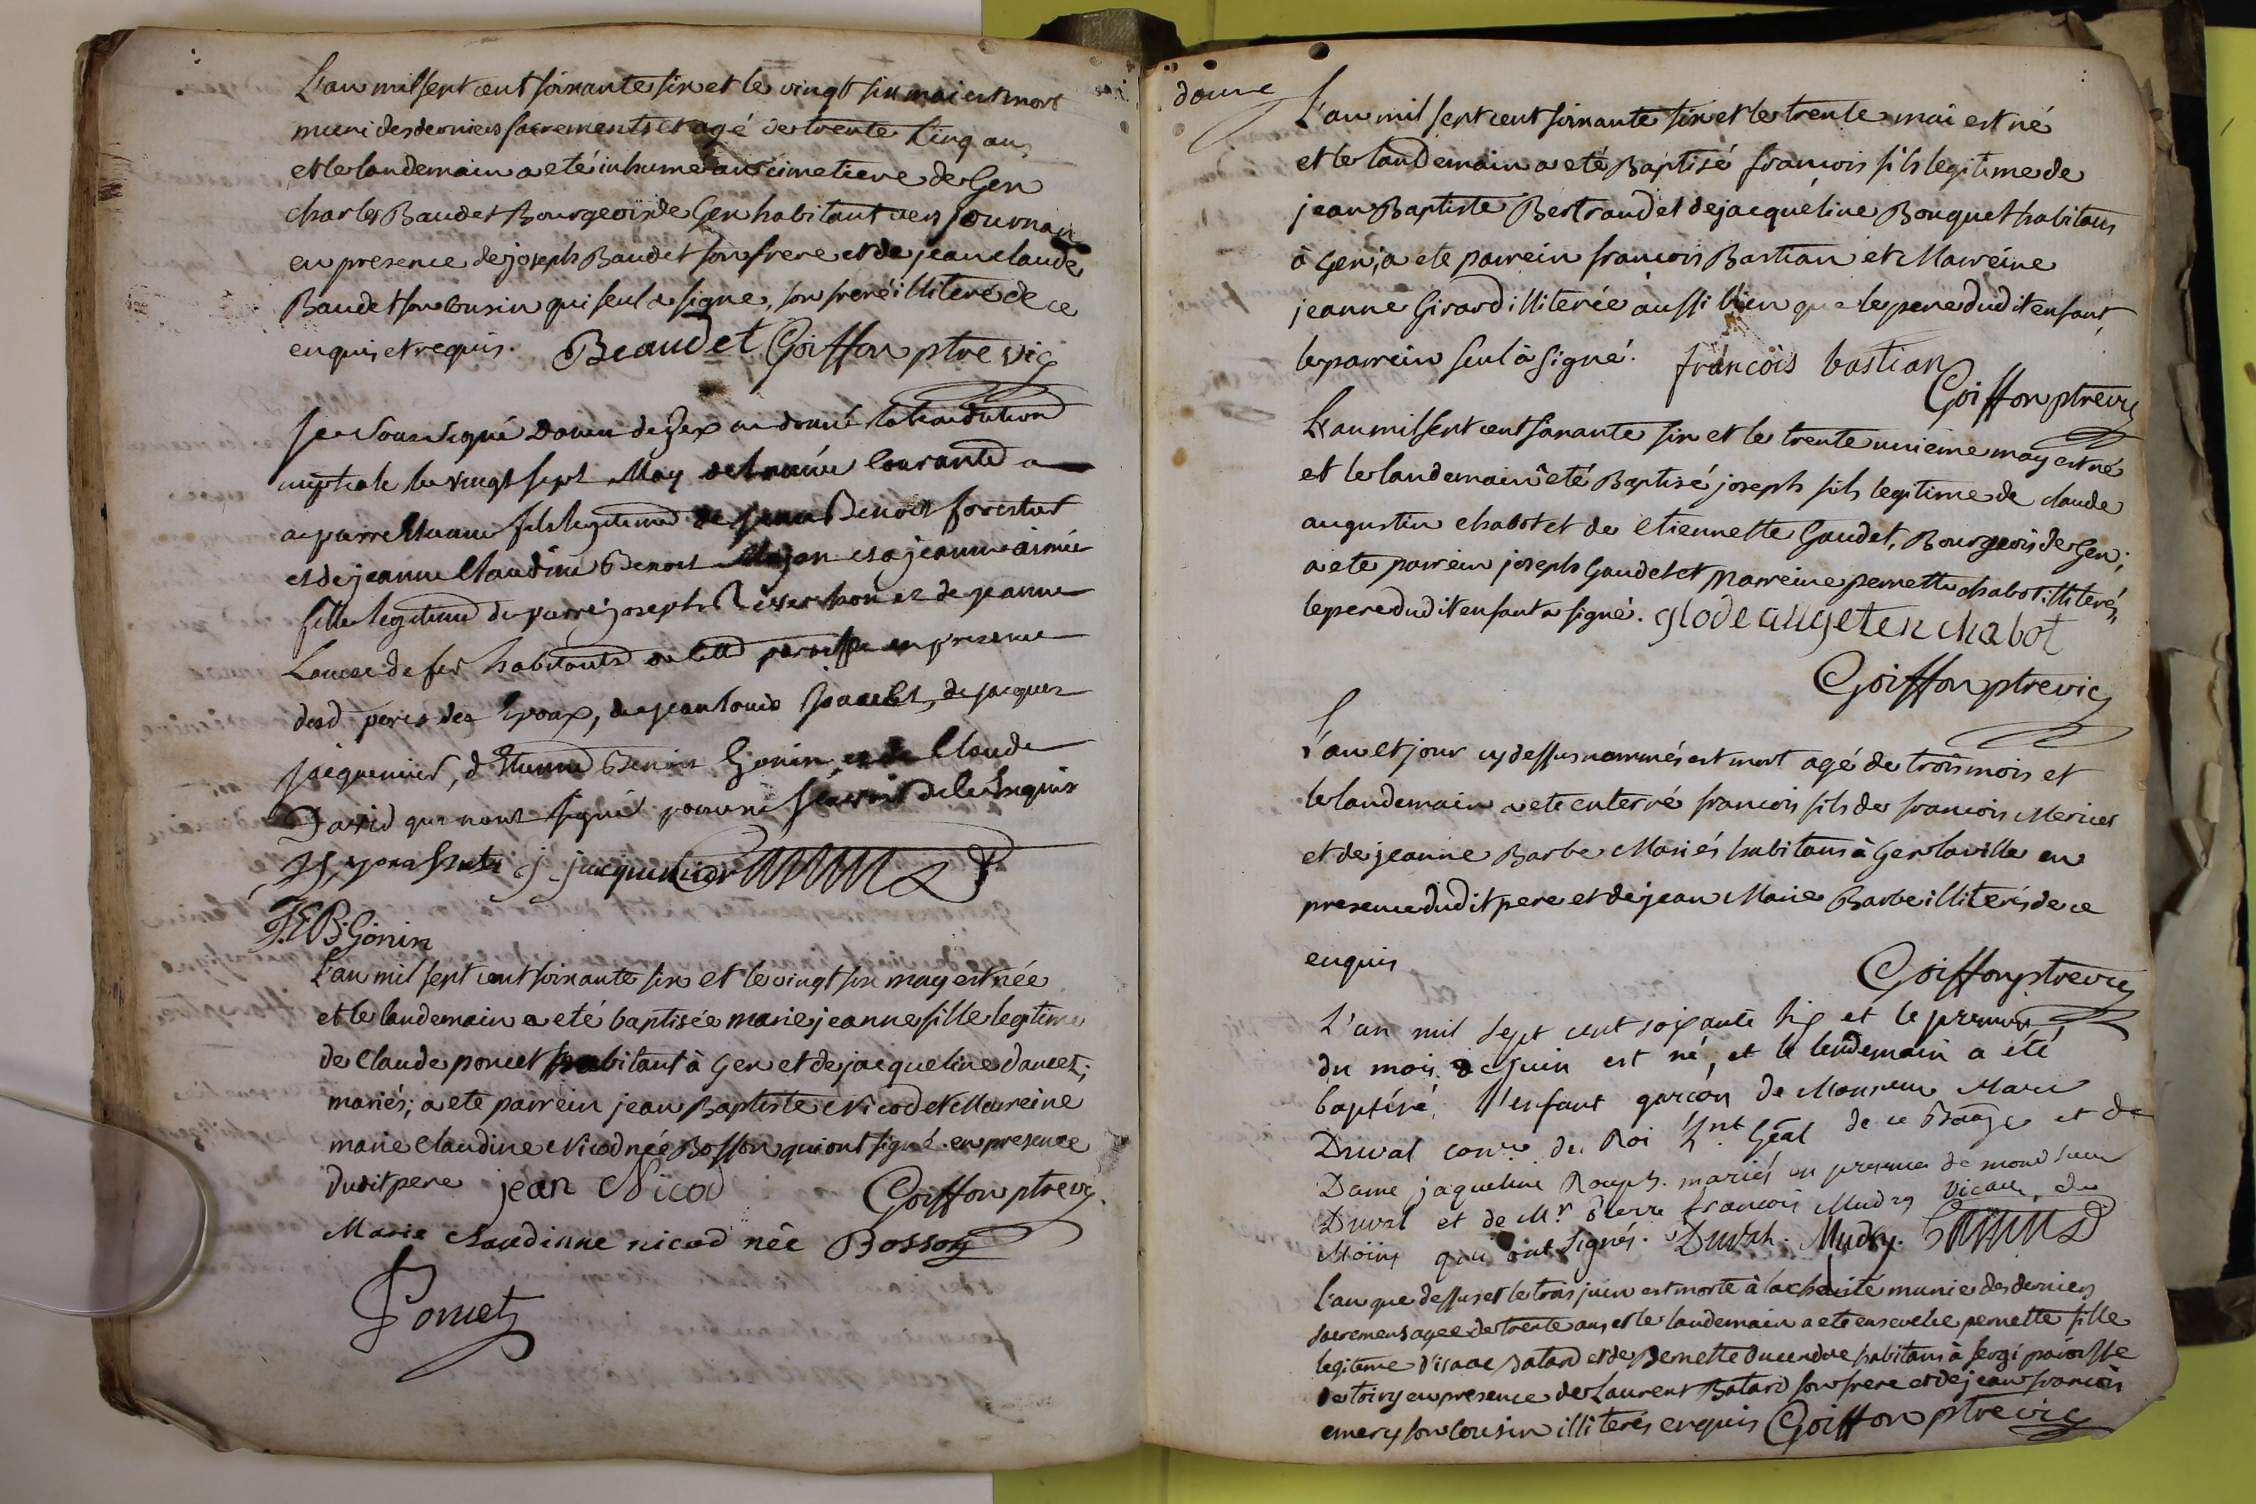 L'an mil sept cent soixante six et le vingt six mai est mort
muni des derniers sacrements et agé de trente cinq ans
et le landemain a eté inhumé au cimetiere de Gex
charles Baudet Bourgeois de Gex habitant vers journan
en presence de joseph Baudet son frere et de jean claude
Baudet son cousin qui seul a signé, son frere illiteré de ce
enquis et requis. Beaudet Goiffon ptre vic
Je Soussigné Doien de Gex ai donné la benediction
nuptiale le vingt sept May de l'année Courante a
a pierre Etienne fils legitime de jean Benoit forestier
et de jeanne Claudine Benoit Mojon et a jeanne aimée
fille legitime de pierre joseph Reverchon et de jeanne
Lance de fer habitants de cette paroisse en presence
desd peres des Epoux, de jean louis de jacques
jacquemier, d'Etienne Benoit Gonin et de Claude
David qui n'ont signé pour ne scavoir de ce Enquis
j jacquemier
J.E.B. Gonin
L'an mil sept cent soixante six et le vingt six may est née
et le landemain a eté baptisée marie jeanne fille legitime
de Claude poncet habitant à Gex et de jacqueline dancet,
mariés; a eté parrein jean Baptiste Nicod et Marreine
marie Claudine Nicod née Bosson qui ont signé en presence
dudit pere jean Nicod Goiffon ptre vic
Marie Claudinne nicod née Bosson
Poncet
doune
L'an mil sept cent soixante six et le trente mai est né
et le landemain a eté Baptisé francois fils legitime de
jean Baptiste Bertrand et de jacqueline Bouquet habitans
à Gex, a eté parrein francois Bastian et Marreine
jeanne Girard illiterée aussi bien que le pere dudit enfant,
le parrein seul à signé. francois bastian
Goiffon ptre vic
L'an mil sept cent soixante six et le trente unieme may est né
et le landemain a eté Baptisé joseph fils legitime de claude
augustin chabot et de Etiennette Gaudet, Bourgeois de Gex;
a eté parrein joseph Gaudet et marreine pernette chabot illiterés,
le pere dudit enfant a signé. glode augeten chabot
Goiffon ptre vic
L'an et jour cy dessus nommés est mort agé de trois mois et
le landemain a eté enterré francois fils de francois Mercier
et de jeanne Barbe Mariés habitans à Gex la ville en
presence dudit pere et de jean Marie Barbe illiterés de ce
enquis
Goiffon ptre vic
L'an mil sept cent soixante six et le premier
du mois de juin est né, et le lendemain a été
baptisé l'enfant garçon de Monsieur Marc
Duval conr du Roi Lnt Géal de ce Baage et de
Dame jaqueline Rouph. mariés en presence de monsieur
Duval et de Mr pierre francois Mudry vicaire, du
Moiins qui ont signés. Duval. Mudry.
L'an que dessus et le trois juin est morte à la charité munie des derniers
sacremens agée de trente ans et le landemain a eté ensevelie pernette fille
legitime d'isaac Batard et de Bernette Ducendre habitans à sergi paroisse
de toiry en presence de Laurent Batard son frere et de jean francois
emery son cousin illiterés enquis Goiffon ptre vic